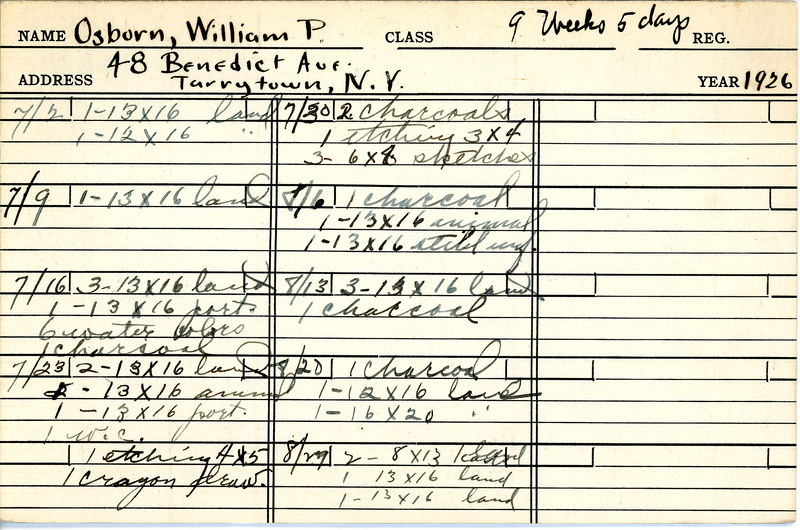 NAME Osborn, William P. CLASS 9 Weeks 5 days REG.
ADDRESS 48 Benedict Ave.
Tarrytown, N.Y. YEAR 1926
7/2 1-13x16 land
1-12x16 "
7/9 1-13x16 land
7/16 3-13x16 land
1-13x16 port
6 water colors
1 charcoal
7/23 2-13x16 land
2-13x16 animal
1-13x16 port.
1 w.c.
1 etching 4x5
1 crayon draw.
7/30 2 charcoals
1 etching 3x4
3- 6x8 sketches
8/6 1 charcoal
1-13x16 animal
1-13x16 still
8/13 3-13x16 land
1 charcoal
8/20 1 charcoal
1-12x16 land
1-16x20 "
8/27 2-8x13
1 13x16 land
1-13x16 land